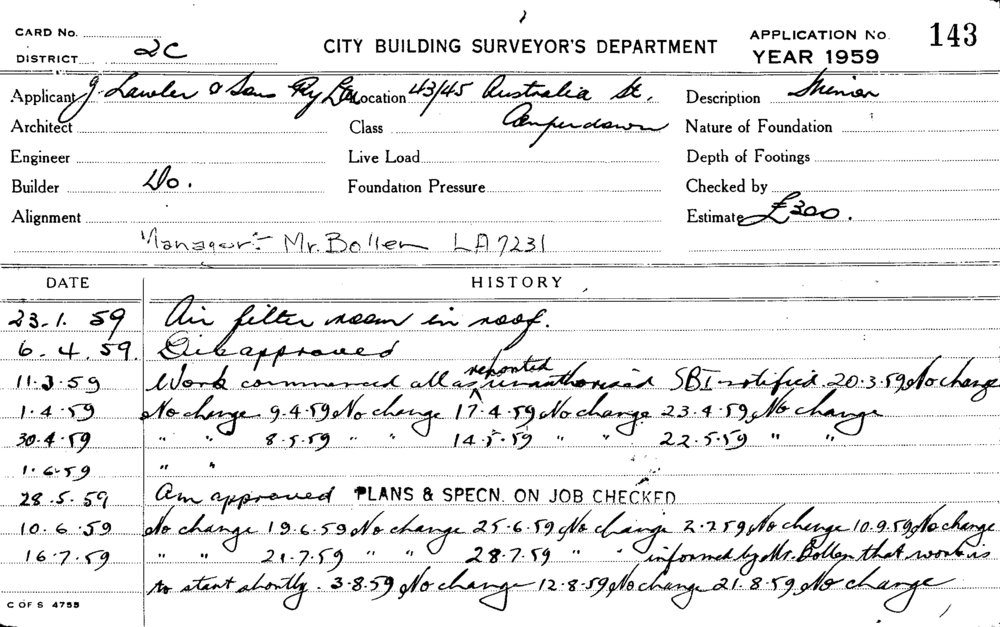 CARD No.
DISTRICT 2C
CITY BUILDING SURVEYOR'S DEPARTMENT
APPLICATION No. 143
YEAR 1959
Applicant J. Lawler & Sons Pty Ltd Location 43/45 Australia St. Description Minor
Architect Class Camperdown Nature of Foundation
Engineer Live Load Depth of Footings
Builder Do. Foundation Pressure Checked by
Alignment Estimate £300.
Manager:- Mr. Bollen LA7231
DATE HISTORY
23.1.59 Air filter room in roof.
6.4.59. Disapproved
11.3.59 Work commenced all as reported unauthorised SBI notified 20.3.59 No change
1.4.59 No change 9.4.59 No change 17.4.59 No change 23.4.59 No change
30.4.59 " " 8.5.59 " " 14.5.59 " " 22.5.59 " "
1.6.59 " "
28.5.59 Am approved PLANS & SPECN. ON JOB CHECKED
10.6.59 No change 19.6.59 No change 25.6.59 No change 2.7.59 No change 10.9.59 No change
16.7.59 " " 21.7.59 " " 28.7.59 " " informed by Mr. Bollen that work is
to start shortly. 3.8.59 No change 12.8.59 No change 21.8.59 No change
C OF S 4755